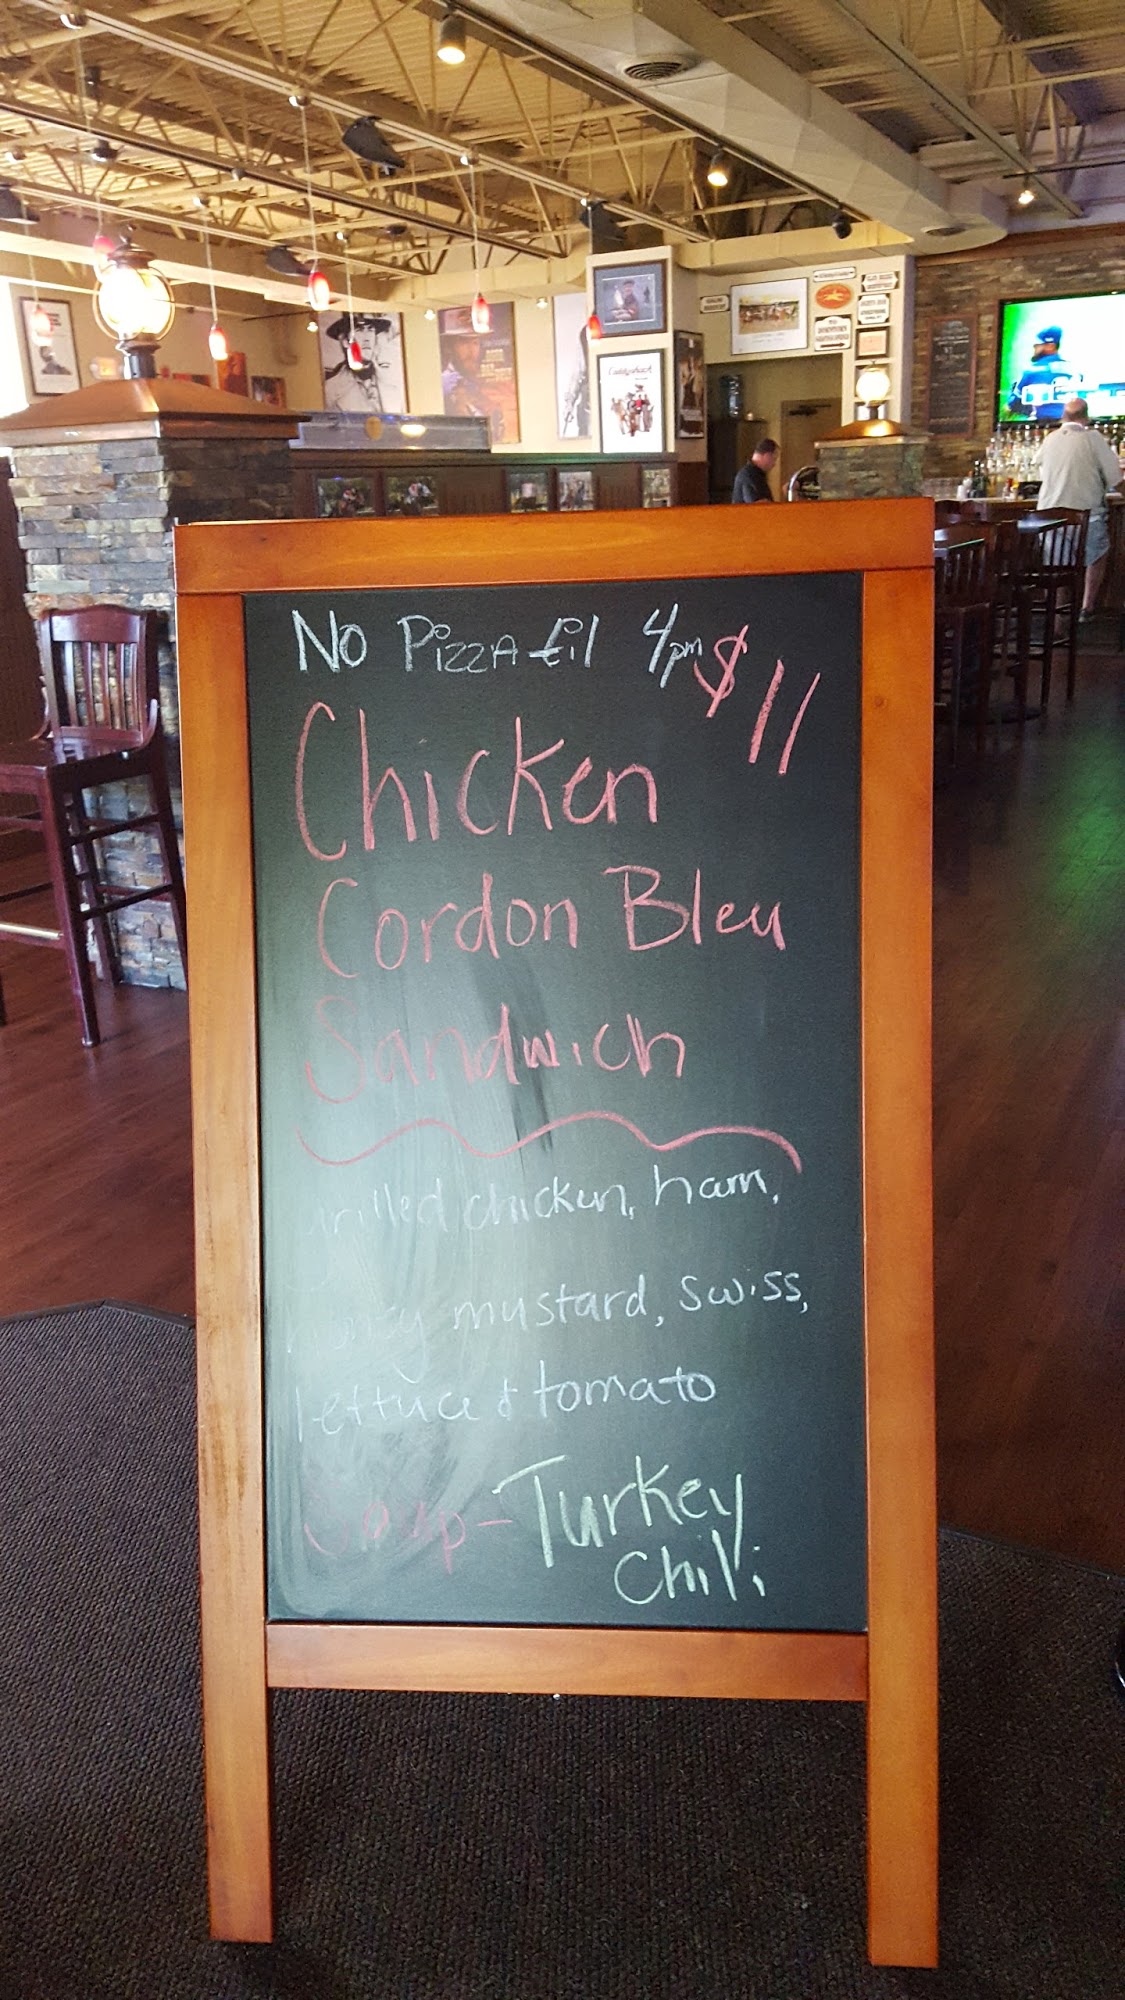 No Pizza til 4pm
$11
Chicken
Cordon Bleu
Sandwich
grilled chicken, ham,
honey mustard, swiss,
lettuce & tomato
Soup - Turkey
Chili
Caddyshack